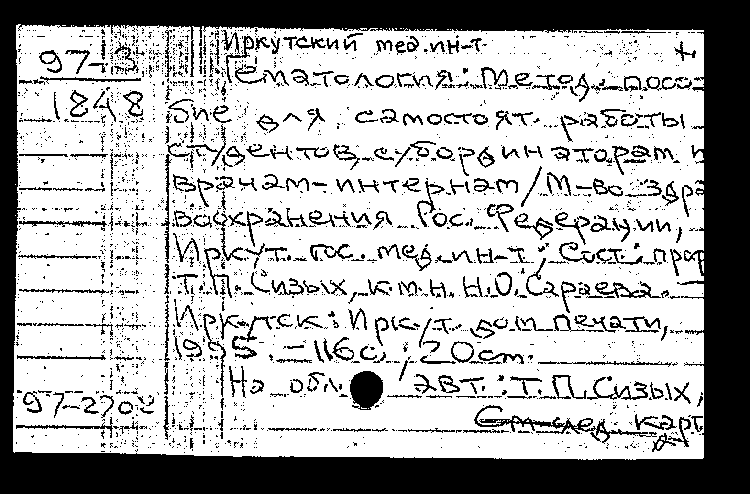 Иркутский мед.ин-т
97-3
Гематология: Метод. посо
1848
бие для самостоят. работы
студентов, субординаторам и
врачам-интернам / М-во здра
воохранения Рос. Федерации,
Иркут. гос. мед. ин-т; Сост.: проф
Т.П. Сизых, к.м.н. Н.О. Сараева. –
Иркутск: Иркут. дом печати,
1995. – 116с.; 20см.
На обл. авт.: Т.П. Сизых,
97-2702
См. след. карт